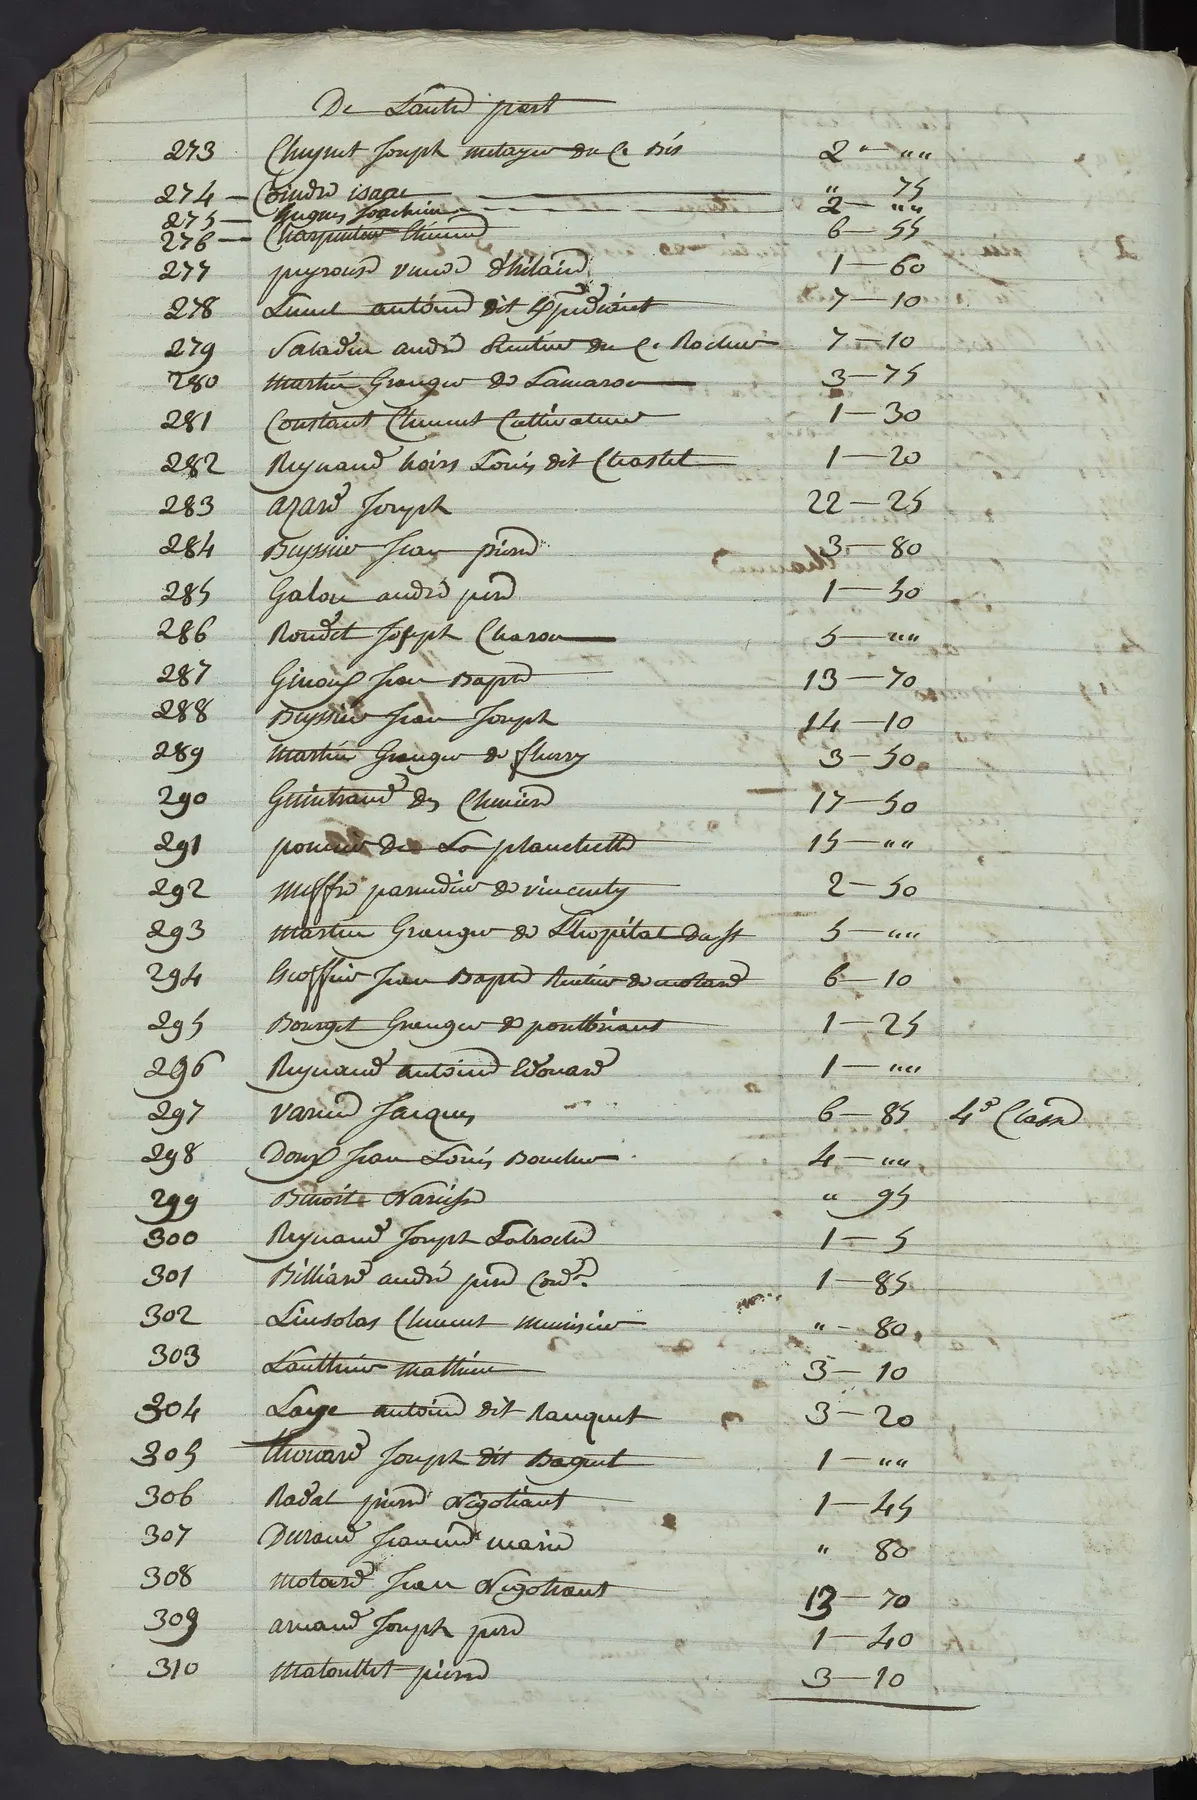 De Lautre part
273 Chuynet Joseph metayer du C. Bès 2 " ""
274 — Coindre isaac " 75
275 — hugues Joachim 2 — ""
276 — Charpentier Etienne 6 — 55
277 peyrouse veuve d'hilaire 1 — 60
278 Lunel antoine dit 7 — 10
279 Saladin andré Rentier du C. Rochier 7 — 10
280 Martin Granger de Lamaron 3 — 75
281 Constant Clement Cultivateur 1 — 30
282 Reynaud hoirs Louis dit Chastel 1 — 20
283 azard Joseph 22 — 25
284 Buyssier Jean pierre 3 — 80
285 Galon andré pere 1 — 50
286 Roudet Joseph Charon 5 — ""
287 Ginoux Jean Bapte 13 — 70
288 Buyssier Jean Joseph 14 — 10
289 Martin Granger de fleury 3 — 50
290 Guintrand des Cheniere 17 — 50
291 pommier de La planchette 15 — ""
292 Meffre parmdier de vincenty 2 — 50
293 Martin Granger de L'hopital du St 5 — ""
294 Geoffier Jean Bapte Rentier de motard 6 — 10
295 Bourget Granger de pontbriant 1 — 25
296 Reynaud antoine Edouard 1 — ""
297 varine Jacques 6 — 85 4e Classe
298 Doux Jean Louis Boucher 4 — ""
299 Benoit Narcisse " 95
300 Reynaud Joseph Labroche 1 — 5
301 Billiard andré pere Cord.r 1 — 85
302 Linsolas Clement menuisier " — 80
303 Lauthier Mathieu 3 — 10
304 Lange antoine dit Ranquet 3 — 20
305 thouard Joseph dit Baguet 1 — ""
306 Radat pierre Negotiant 1 — 45
307 Durand Jeanne marie " 80
308 Motard Jean Negotiant 13 — 70
309 arnaud Joseph pere 1 — 40
310 Matoullet pierre 3 — 10